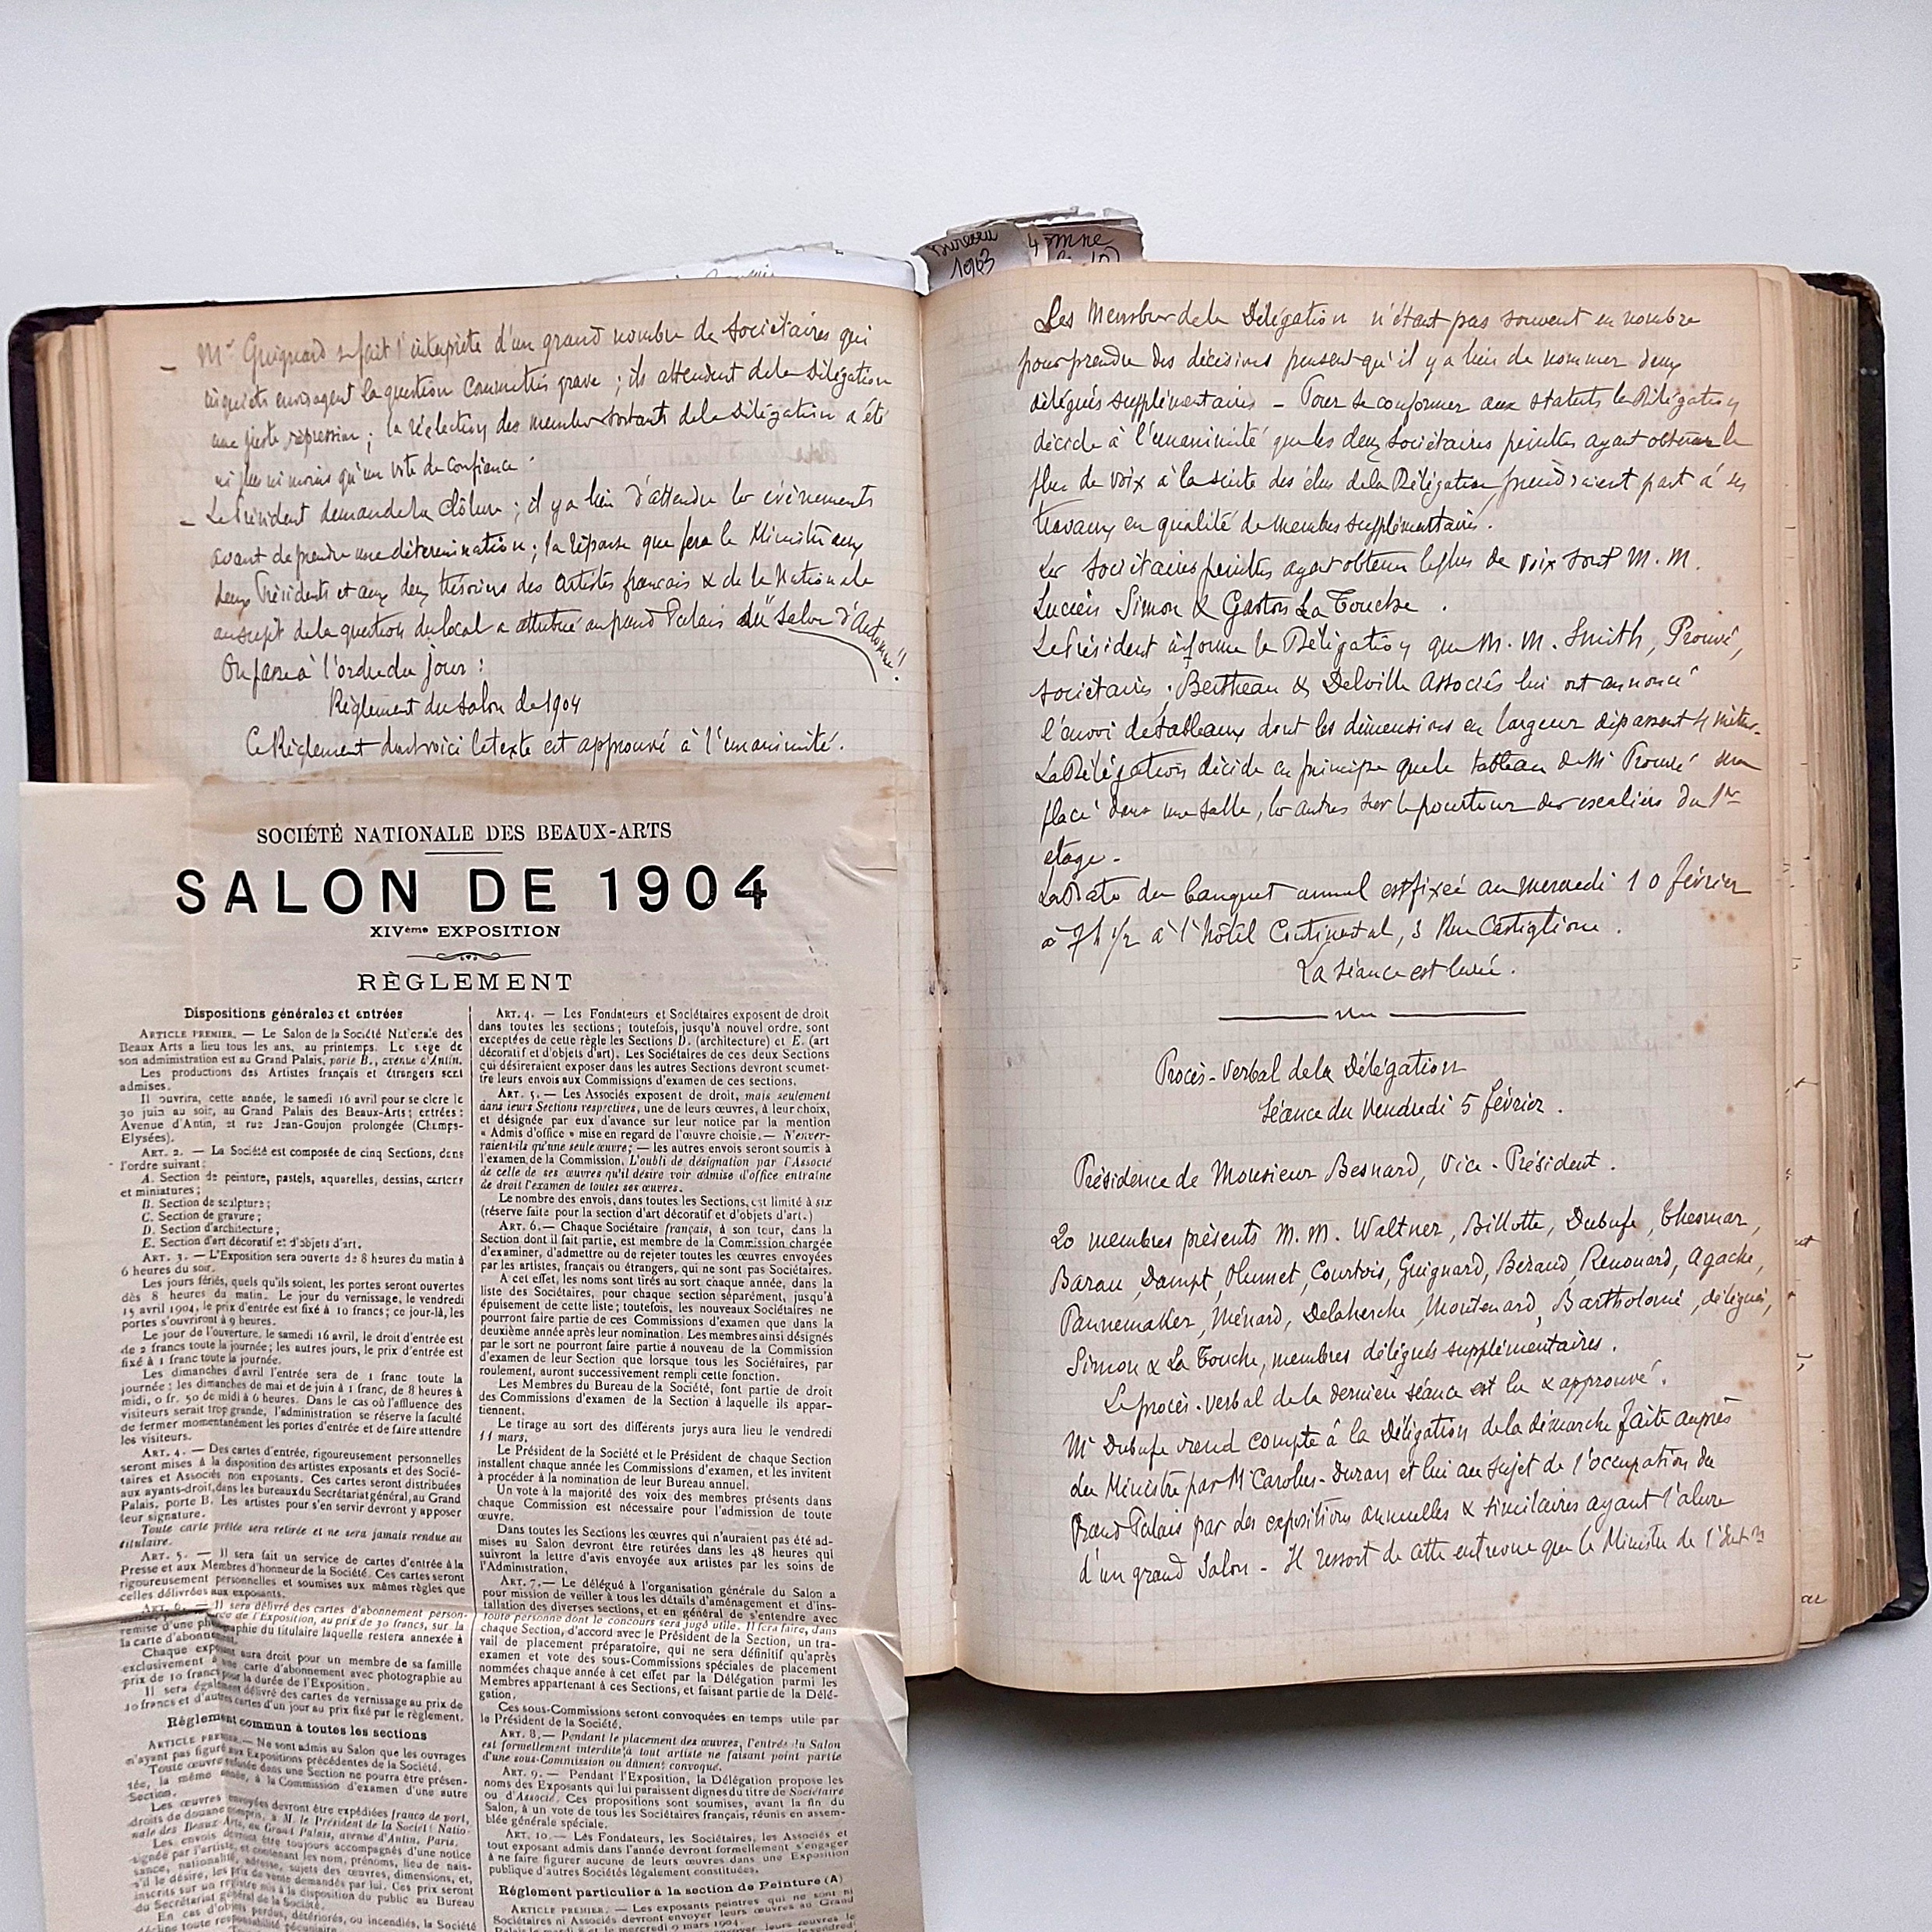 Bureau
1903
4
Mr Guignard se fait l'interprète d'un grand nombre de Sociétaires qui
inquiets envisagent la question comme très grave ; ils attendent de la Délégation
une juste répression ; la réélection des membres sortants de la Délégation a été
ni plus ni moins qu'un vote de confiance.
Le Président demande la clôture ; il y a lieu d'attendre les évènements
avant de prendre une détermination ; la réponse que fera le Ministre aux
deux Présidents et aux deux trésoriers des Artistes français & de la Nationale
au sujet de la question du local a attribué au grand Palais du "Salon d'Automne"!
On passe à l'ordre du jour :
Règlement du Salon de 1904
Ce Règlement dont voici le texte est approuvé à l'unanimité.
SOCIÉTÉ NATIONALE DES BEAUX-ARTS
SALON DE 1904
XIVème EXPOSITION
RÈGLEMENT
Dispositions générales et entrées
ARTICLE PREMIER. — Le Salon de la Société Nationale des
Beaux Arts a lieu tous les ans, au printemps. Le siège de
son administration est au Grand Palais, porte B., avenue d'Antin.
Les productions des Artistes français et étrangers sont
admises.
Il ouvrira, cette année, le samedi 16 avril pour se clore le
30 juin au soir, au Grand Palais des Beaux-Arts; entrées:
Avenue d'Antin, et rue Jean-Goujon prolongée (Champs-
Elysées).
ART. 2. — La Société est composée de cinq Sections, dans
l'ordre suivant:
A. Section de peinture, pastels, aquarelles, dessins, cartons
et miniatures;
B. Section de sculpture;
C. Section de gravure;
D. Section d'architecture;
E. Section d'art décoratif et d'objets d'art.
ART. 3. — L'Exposition sera ouverte de 8 heures du matin à
6 heures du soir.
Les jours fériés, quels qu'ils soient, les portes seront ouvertes
dès 8 heures du matin. Le jour du vernissage, le vendredi
15 avril 1904, le prix d'entrée est fixé à 10 francs; ce jour-là, les
portes s'ouvriront à 9 heures.
Le jour de l'ouverture, le samedi 16 avril, le droit d'entrée est
de 2 francs toute la journée; les autres jours, le prix d'entrée est
fixé à 1 franc toute la journée.
Les dimanches d'avril l'entrée sera de 1 franc toute la
journée; les dimanches de mai et de juin à 1 franc, de 8 heures à
midi, 0 fr. 50 de midi à 6 heures. Dans le cas où l'affluence des
visiteurs serait trop grande, l'administration se réserve la faculté
de fermer momentanément les portes d'entrée et de faire attendre
les visiteurs.
ART. 4. — Des cartes d'entrée, rigoureusement personnelles
seront mises à la disposition des artistes exposants et des Socié-
taires et Associés non exposants. Ces cartes seront distribuées
aux ayants-droit, dans les bureaux du Secrétariat général, au Grand
Palais, porte B. Les artistes pour s'en servir devront y apposer
leur signature.
Toute carte prêtée sera retirée et ne sera jamais rendue au
titulaire.
ART. 5. — Il sera fait un service de cartes d'entrée à la
Presse et aux Membres d'honneur de la Société. Ces cartes seront
rigoureusement personnelles et soumises aux mêmes règles que
celles délivrées aux exposants.
ART. 6. — Il sera délivré des cartes d'abonnement person-
de l'Exposition, au prix de 30 francs, sur la
remise d'une photographie du titulaire laquelle restera annexée à
la carte d'abonnement.
Chaque exposant aura droit pour un membre de sa famille
exclusivement à une carte d'abonnement avec photographie au
prix de 10 francs pour la durée de l'Exposition.
Il sera également délivré des cartes de vernissage au prix de
10 francs et d'autres cartes d'un jour au prix fixé par le règlement.
Règlement commun à toutes les sections
ARTICLE PREMIER. — Ne sont admis au Salon que les ouvrages
n'ayant pas figuré aux Expositions précédentes de la Société.
Toute œuvre refusée dans une Section ne pourra être présen-
tée, la même année, à la Commission d'examen d'une autre
Section.
Les œuvres envoyées devront être expédiées franco de port,
droits de douane compris, à M. le Président de la Société Natio-
nale des Beaux-Arts, au Grand Palais, avenue d'Antin, Paris.
Les envois devront être toujours accompagnés d'une notice
signée par l'artiste et contenant les nom, prénoms, lieu de nais-
sance, nationalité, adresse, sujets des œuvres, dimensions, et,
s'il le désire, les prix de vente demandés par lui. Ces prix seront
inscrits sur un registre mis à la disposition du public au Bureau
du Secrétariat général de la Société.
En cas d'objets perdus, détériorés, ou incendiés, la Société
décline toute responsabilité pécuniaire.
ART. 4. — Les Fondateurs et Sociétaires exposent de droit
dans toutes les sections; toutefois, jusqu'à nouvel ordre, sont
exceptées de cette règle les Sections D. (architecture) et E. (art
décoratif et d'objets d'art). Les Sociétaires de ces deux Sections
qui désireraient exposer dans les autres Sections devront soumet-
tre leurs envois aux Commissions d'examen de ces sections.
ART. 5. — Les Associés exposent de droit, mais seulement
dans leurs Sections respectives, une de leurs œuvres, à leur choix,
et désignée par eux d'avance sur leur notice par la mention
« Admis d'office » mise en regard de l'œuvre choisie. — N'enver-
raient-ils qu'une seule œuvre; — les autres envois seront soumis à
l'examen de la Commission. L'oubli de désignation par l'Associé
de celle de ses œuvres qu'il désire voir admise d'office entraîne
de droit l'examen de toutes ses œuvres.
Le nombre des envois, dans toutes les Sections, est limité à six
(réserve faite pour la section d'art décoratif et d'objets d'art.)
ART. 6. — Chaque Sociétaire français, à son tour, dans la
Section dont il fait partie, est membre de la Commission chargée
d'examiner, d'admettre ou de rejeter toutes les œuvres envoyées
par les artistes, français ou étrangers, qui ne sont pas Sociétaires.
A cet effet, les noms sont tirés au sort chaque année, dans la
liste des Sociétaires, pour chaque section séparément, jusqu'à
épuisement de cette liste; toutefois, les nouveaux Sociétaires ne
pourront faire partie de ces Commissions d'examen que dans la
deuxième année après leur nomination. Les membres ainsi désignés
par le sort ne pourront faire partie à nouveau de la Commission
d'examen de leur Section que lorsque tous les Sociétaires, par
roulement, auront successivement rempli cette fonction.
Les Membres du Bureau de la Société, font partie de droit
des Commissions d'examen de la Section à laquelle ils appar-
tiennent.
Le tirage au sort des différents jurys aura lieu le vendredi
11 mars.
Le Président de la Société et le Président de chaque Section
installent chaque année les Commissions d'examen, et les invitent
à procéder à la nomination de leur Bureau annuel.
Un vote à la majorité des voix des membres présents dans
chaque Commission est nécessaire pour l'admission de toute
œuvre.
Dans toutes les Sections les œuvres qui n'auraient pas été ad-
mises au Salon devront être retirées dans les 48 heures qui
suivront la lettre d'avis envoyée aux artistes par les soins de
l'Administration.
ART. 7. — Le délégué à l'organisation générale du Salon a
pour mission de veiller à tous les détails d'aménagement et d'ins-
tallation des diverses sections, et en général de s'entendre avec
toute personne dont le concours sera jugé utile. Il fera faire, dans
chaque Section, d'accord avec le Président de la Section, un tra-
vail de placement préparatoire, qui ne sera définitif qu'après
examen et vote des sous-Commissions spéciales de placement
nommées chaque année à cet effet par la Délégation parmi les
Membres appartenant à ces Sections, et faisant partie de la Délé-
gation.
Ces sous-Commissions seront convoquées en temps utile par
le Président de la Société.
ART. 8. — Pendant le placement des œuvres, l'entrée du Salon
est formellement interdite à tout artiste ne faisant point partie
d'une sous-Commission ou dûment convoqué.
ART. 9. — Pendant l'Exposition, la Délégation propose les
noms des Exposants qui lui paraissent dignes du titre de Sociétaire
ou d'Associé. Ces propositions sont soumises, avant la fin du
Salon, à un vote de tous les Sociétaires français, réunis en assem-
blée générale spéciale.
ART. 10. — Les Fondateurs, les Sociétaires, les Associés et
tout exposant admis dans l'année devront formellement s'engager
à ne faire figurer aucune de leurs œuvres dans une Exposition
publique d'autres Sociétés légalement constituées.
Réglement particulier à la section de Peinture (A)
ARTICLE PREMIER. — Les exposants peintres qui ne sont ni
Sociétaires ni Associés devront envoyer leurs œuvres au Grand
Palais le mardi 8 et le mercredi 9 mars 1904.
Les Membres de la Délégation n'étant pas souvent en nombre
pour prendre des décisions pensent qu'il y a lieu de nommer deux
délégués supplémentaires – Pour se conformer aux statuts la Délégation
décide à l'unanimité que les deux Sociétaires peintres ayant obtenu le
plus de voix à la suite des élus de la Délégation, prendraient part à ses
travaux en qualité de membres supplémentaires.
Les Sociétaires peintres ayant obtenu le plus de voix sont M. M.
Lucien Simon & Gaston La Touche.
Le Président informe la Délégation que M. M. Smith, Prouvé,
Sociétaires, Bertheau & Delville Associés lui ont annoncé
l'envoi de tableaux dont les dimensions en largeur dépassent 4 mètres.
La Délégation décide en principe que le tableau de Mr Prouvé sera
placé dans une salle, les autres sur le pourtour des escaliers du 1er
étage -
La Date du banquet annuel est fixée au mercredi 10 février
à 7h 1/2 à l'hôtel Continental, 3 Rue Castiglione.
La Séance est levée.
Procès-verbal de la Délégation
Séance du Vendredi 5 février.
Présidence de Monsieur Besnard, Vice-Président.
20 membres présents M. M. Waltner, Billotte, Dubufe, Thesmar,
Barau, Dampt, Plumet, Courtois, Guignard, Béraud, Renouard, Agache,
Pannemaker, Ménard, Delaherche, Montenard, Bartholomé, délégués,
Simon & La Touche, membres délégués supplémentaires.
Le procès-verbal de la dernière séance est lu & approuvé.
Mr Dubufe rend compte à la Délégation de la démarche faite auprès
du Ministre par Mr Carolus-Duran et lui au sujet de l'occupation du
Grand Palais par des expositions annuelles & similaires ayant l'allure
d'un grand Salon – Il ressort de cette entrevue que le Ministre de l'Instn